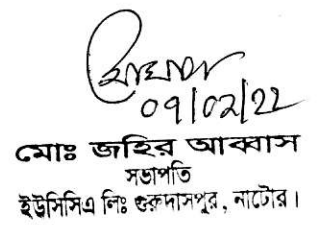 ০৭/০২/২২
মোঃ জহির আব্বাস
সভাপতি
ইউসিসিএ লিঃ গুরুদাসপুর, নাটোর।